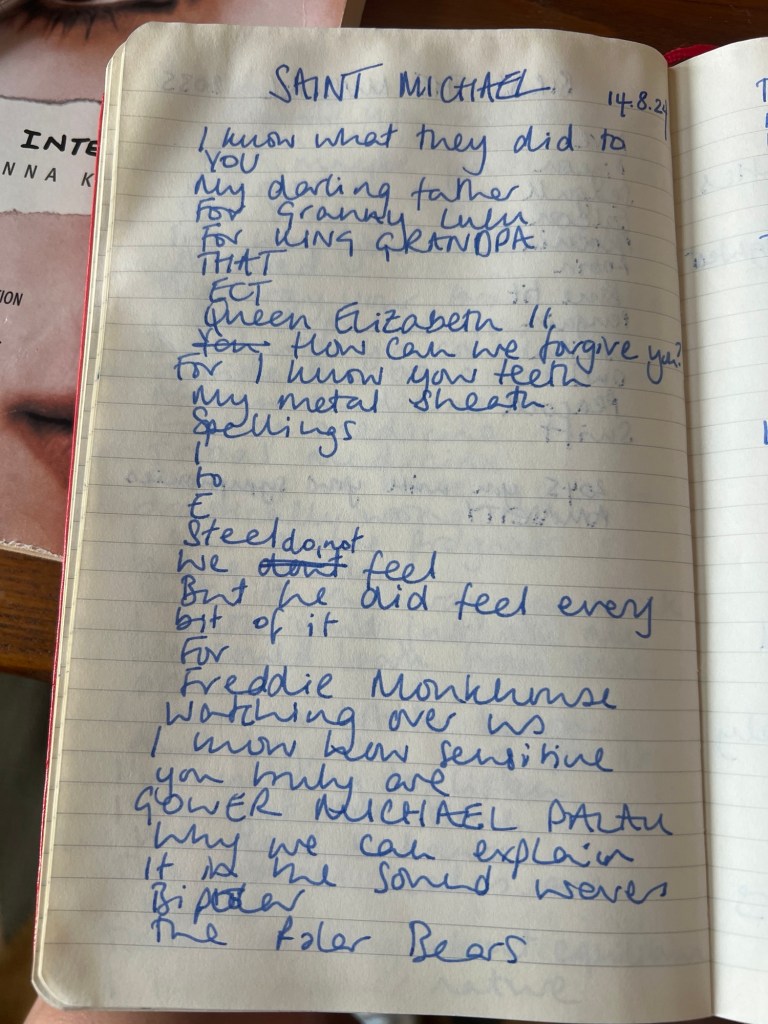 SAINT MICHAEL
14.8.24
I know what they did to
YOU
My darling father
For Granny Lulu
For KING GRANDPA
THAT
ECT
Queen Elizabeth II
You How can we forgive you?
For I know your teeth
My metal sheath
Spellings
I
to
E
Steel do not
We dont feel
But he did feel every
bit of it
For
Freddie Monkhouse
Watching over us
I know how sensitive
you truly are
GOWER MICHAEL PALAU
Why we can explain
It in the sound waves
Bipolar
The Polar Bears
INTE
NNA K
ION